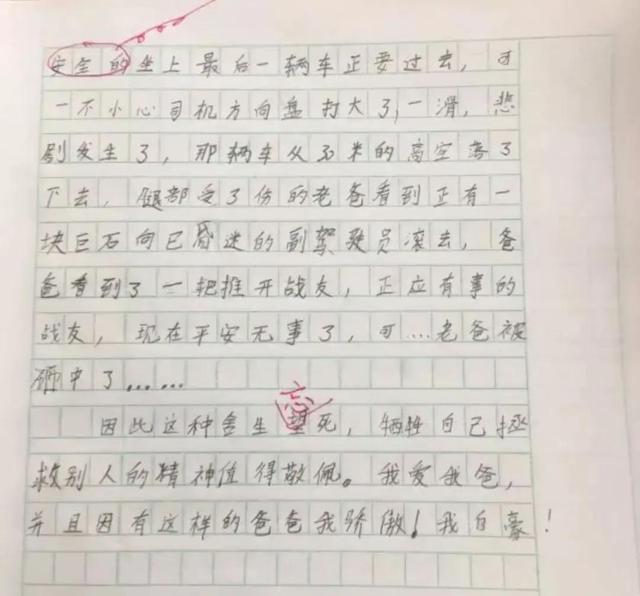 安全的坐上最后一辆车正要过去，可
一不小心司机方向盘打大了，一滑，悲
剧发生了，那辆车从30米的高空落了
下去，腿部受了伤的老爸看到正有一
块巨石向已昏迷的副驾驶员滚去，爸
爸看到了一把推开战友，正应有事的
战友，现在平安无事了，可....老爸被
砸中了......
忘
因此这种舍生望死，牺牲自己拯
救别人的精神值得敬佩。我爱我爸，
并且因有这样的爸爸我骄傲！我自豪！